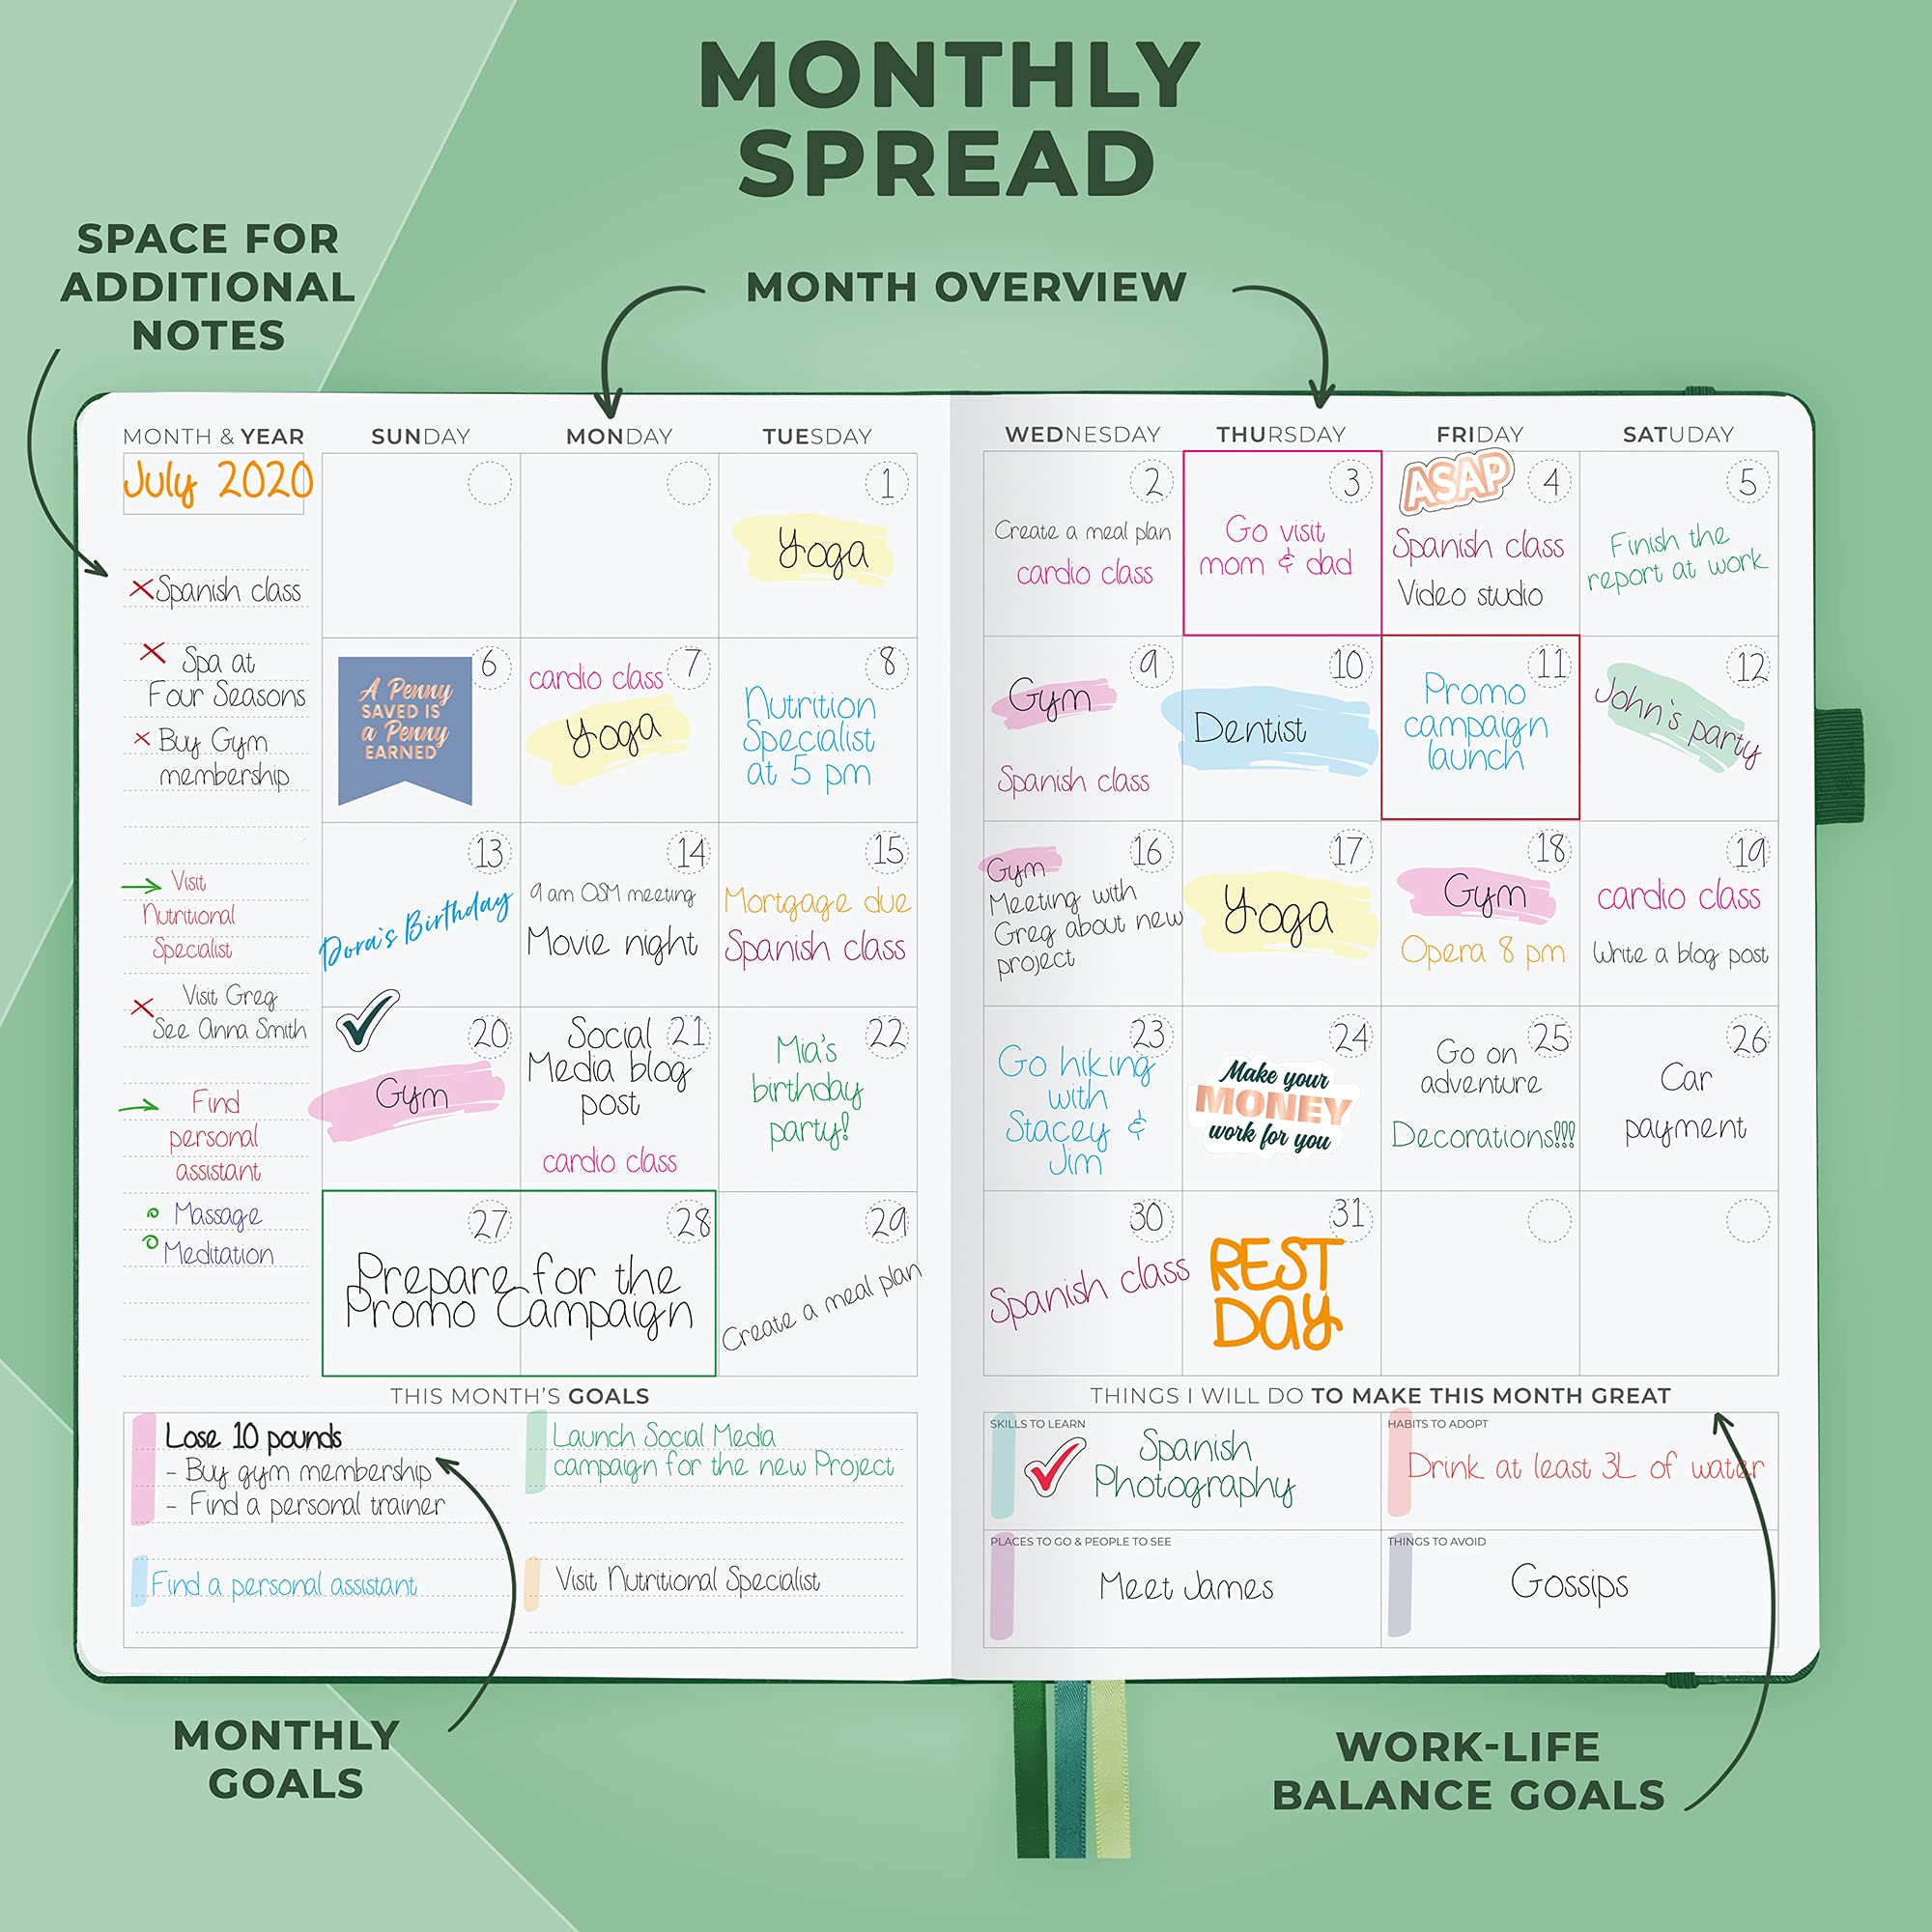 MONTHLY
SPREAD
SPACE FOR
ADDITIONAL
NOTES
MONTH OVERVIEW
MONTH & YEAR
July 2020
✗ Spanish class
✗ Spa at
Four Seasons
✗ Buy Gym
membership
→ Visit
Nutritional
Specialist
✗ Visit Greg
See Anna Smith
→ Find
personal
assistant
Massage
Meditation
SUNDAY
MONDAY
TUESDAY
WEDNESDAY
THURSDAY
FRIDAY
SATUDAY
1
Yoga
2
Create a meal plan
cardio class
3
Go visit
mom & dad
ASAP
4
Spanish class
Video studio
5
Finish the
report at work
6
A Penny
SAVED IS
a Penny
EARNED
7
cardio class
Yoga
8
Nutrition
Specialist
at 5 pm
9
Gym
Spanish class
10
Dentist
11
Promo
campaign
launch
12
John's party
13
Dora's Birthday
14
9 am OSM meeting
Movie night
15
Mortgage due
Spanish class
16
Gym
Meeting with
Greg about new
project
17
Yoga
18
Gym
Opera 8 pm
19
cardio class
Write a blog post
20
Gym
21
Social
Media blog
post
cardio class
22
Mia's
birthday
party!
23
Go hiking
with
Stacey &
Jim
24
Make your
MONEY
work for you
25
Go on
adventure
Decorations!!!
26
Car
payment
27
28
Prepare for the
Promo Campaign
29
Create a meal plan
30
Spanish class
31
REST
DAY
THIS MONTH'S GOALS
Lose 10 pounds
- Buy gym membership
- Find a personal trainer
Launch Social Media
campaign for the new Project
Find a personal assistant
Visit Nutritional Specialist
THINGS I WILL DO TO MAKE THIS MONTH GREAT
SKILLS TO LEARN
Spanish
Photography
HABITS TO ADOPT
Drink at least 3L of water
PLACES TO GO & PEOPLE TO SEE
Meet James
THINGS TO AVOID
Gossips
MONTHLY
GOALS
WORK-LIFE
BALANCE GOALS